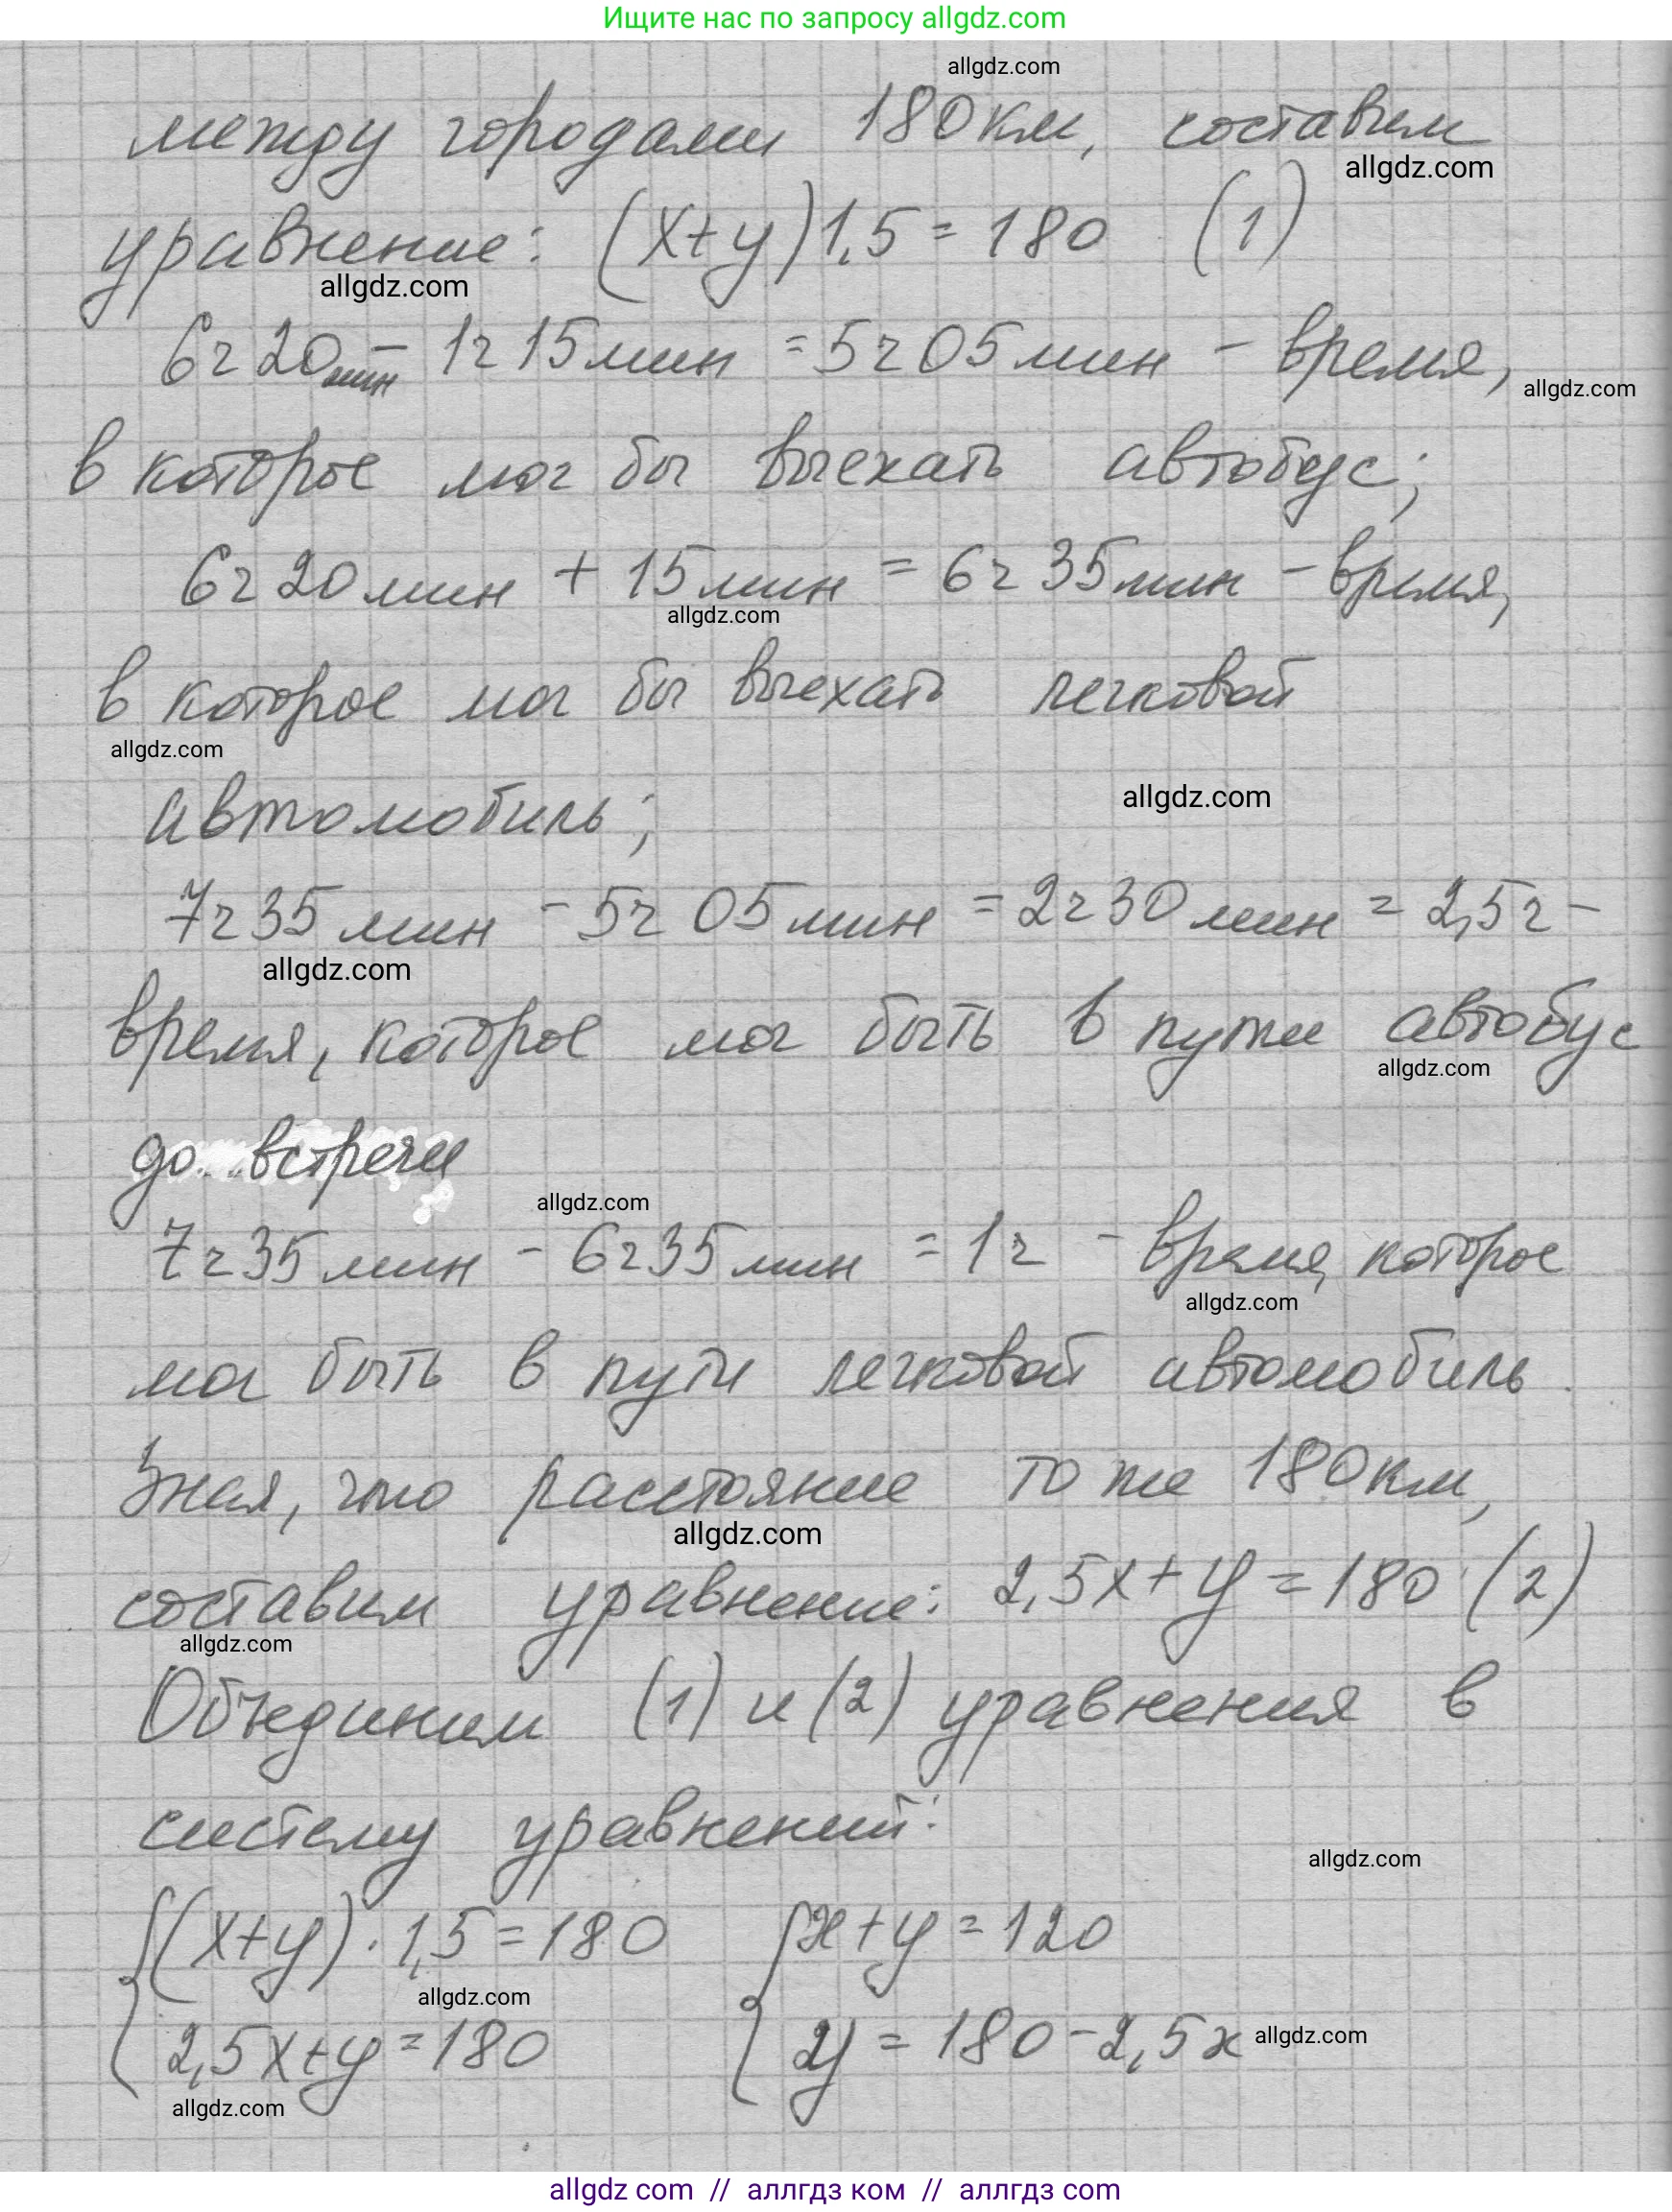 Ищите нас по запросу allgdz.com
allgdz.com
между городами 180км, составим
allgdz.com
уравнение: (x+y)1,5=180 (1)
allgdz.com
6ч20мин - 1ч15мин = 5ч05мин - время,
allgdz.com
в которое мог бы выехать автобус;
6ч20мин + 15мин = 6ч35мин - время,
allgdz.com
в которое мог бы выехать легковой
allgdz.com
автомобиль;
allgdz.com
7ч35мин - 5ч05мин = 2ч30мин = 2,5ч -
allgdz.com
время, которое мог быть в пути автобус
allgdz.com
до встречи
allgdz.com
7ч35мин - 6ч35мин = 1ч - время, которое
allgdz.com
мог быть в пути легковой автомобиль.
Зная, что расстояние то же 180км,
allgdz.com
составим уравнение: 2,5x+y=180 (2)
allgdz.com
Объединим (1) и (2) уравнения в
систему уравнений:
allgdz.com
(x+y)·1,5=180 x+y=120
allgdz.com
2,5x+y=180 y=180-2,5x
allgdz.com
allgdz.com
allgdz com // аллгдз ком // аллгдз com